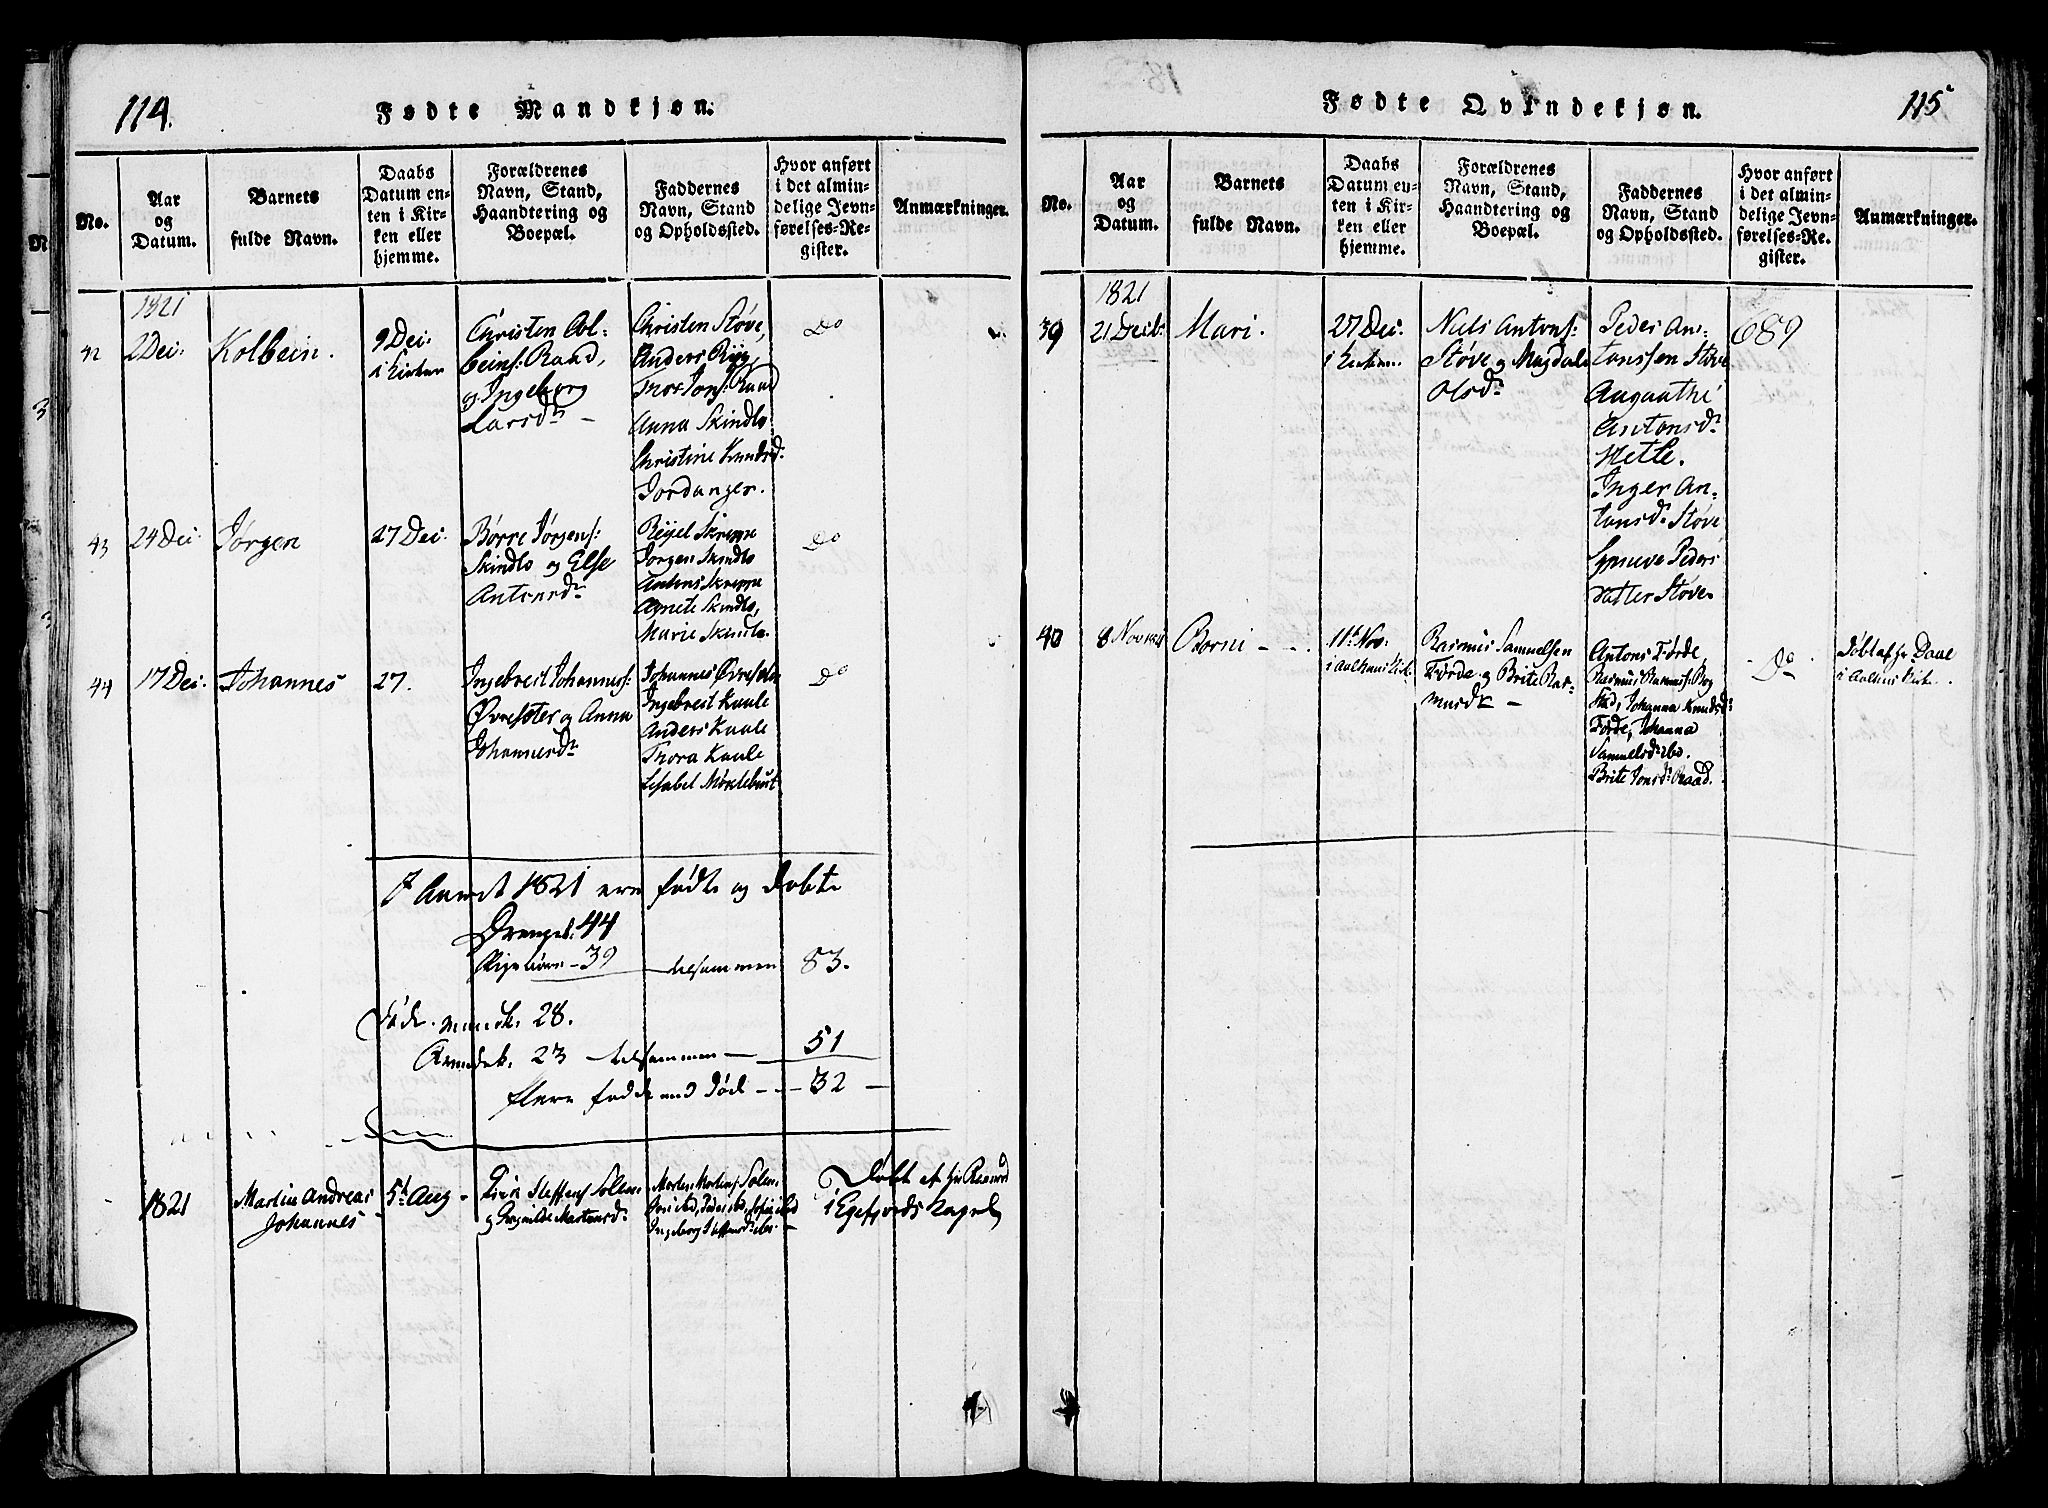 114.
Fødte Mandkjøn.
No.
Aar
og
Datum.
Barnets
fulde Navn.
Daabs
Datum en-
ten i Kir-
ken eller
hjemme.
Forældrenes
Navn, Stand,
Haandtering og
Boepæl.
Faddernes
Navn, Stand
og Opholdssted.
Hvor anført
i det almin-
delige Jevn-
førelses-Re-
gister.
Anmærkninger.
1821
42
2 Dec:
Kolbein.
9 Dec:
i Kirken
Christen Col-
beins: Raad,
og Ingeborg
Larsdr –
Christen Støve,
Anders Ryg,
Mos Jons: Raad
Anna Skindlo
Christine Knudsd:
Jordanger.
Do
43
24 Dec:
Jørgen
27 Dec:
Børre Jørgens:
Skindlo og Else
Antonsdr
Reyel Skreppe
Jørgen Skindlo
Antons Skreppe
Agnete Skindlo,
Marie Skindlo.
Do
44
17 Dec:
Johannes
27.
Ingebrest Johannes:
Øvresæter og Anna
Johannesdr
Johannes Øvresæter
Ingebrest Kaale
Anders Kaale
Thora Kaale
Lisabet Mørkebust
Do
I Aaret 1821 ere fødte og døbte
Drengeb: 44
Pigebørn – 39 tilsammen 83.
Døde mandk. 28.
Qvindek. 23 tilsammen – 51
flere fødde end døde – 32 –
1821
Martin Andreas
Johannes –
5t Aug –
Steffens Solem
og Gregnilde Mortensdr
Morten Mortens: Solem
Ingeborg Steffensdr ibi –
Døbt af hr
i Egefjords Kapel
115
Fødte Qvindekjøn.
No.
Aar
og
Datum.
Barnets
fulde Navn.
Daabs
Datum en-
ten i Kir-
ken eller
hjemme.
Forældrenes
Navn, Stand,
Haandtering og
Boepæl.
Faddernes
Navn, Stand
og Opholdssted.
Hvor anført
i det almin-
delige Jevn-
førelses-Re-
gister.
Anmærkninger.
1821
39
21 Decb:
Mari.
27 Dec:
i Kirken
Niels Antons:
Støve og Magdale
Olsdr
Peder An-
tonssen Støve
Augaathe
Antonsdr
Hetle.
Inger An-
tonsdr Støve
Synneve Peders
datter Støve
689
40
8 Novemb
Borni – – .
11te Nov:
i Aalhuus Kirk.
Rasmus Samuelsen
Førde og Brite Ras-
musdr –
Antons Førde,
Rasmus Rasmus: Bog
Stad, Johanna Knudsdr
Førde, Johanna
Samuelsdr ibd.
Brite Jonsdr Raad.
Do
Døbt af hr Daae
i Aalhus Kirke.